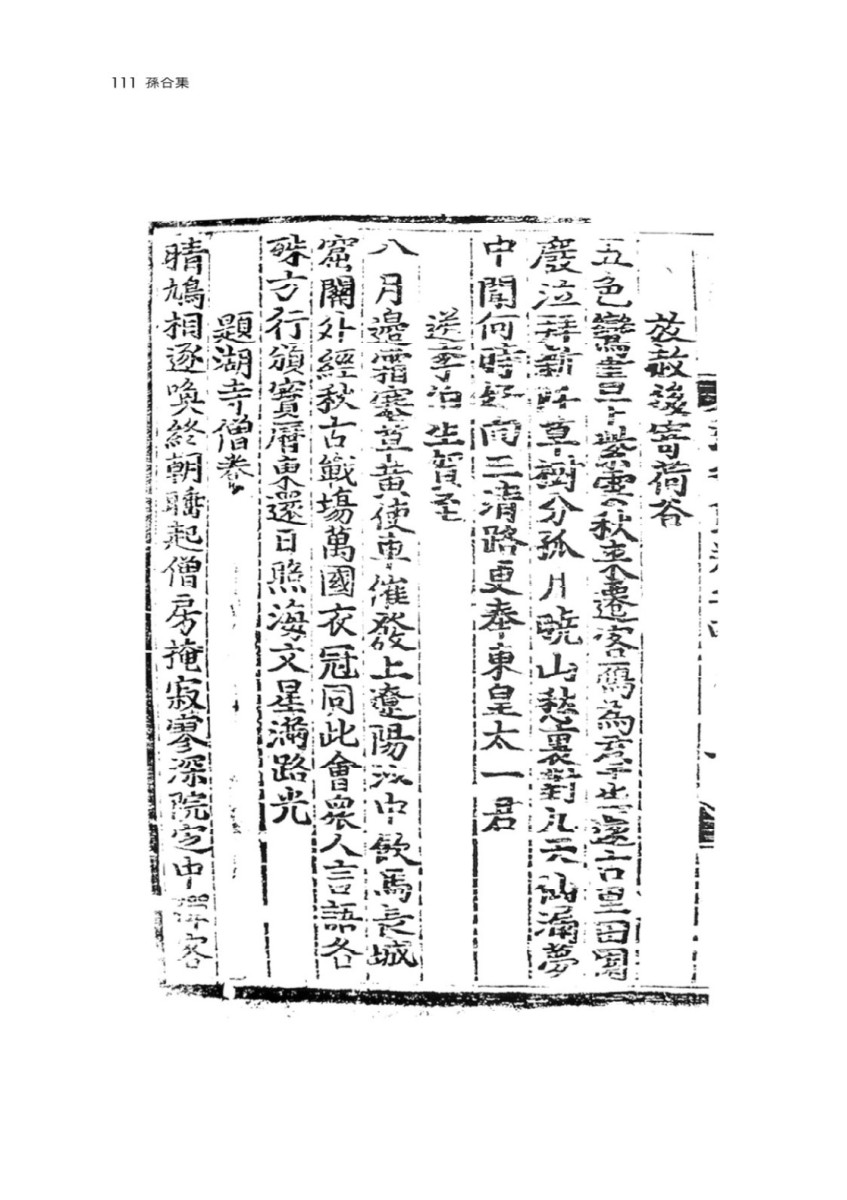 111 孫合集
放赦後寄荷谷
五色鸞書下紫雲秋來遷客鴈為羣生還古里田園
廢泣拜新阡草樹分孤月曉山愁裏對九天仙漏夢
中聞何時好向三清路更奉東皇太一君
送李伯生賀至
八月邊霜塞草黃使車催發上遼陽冰中飮馬長城
窟關外經秋古戰塲萬國衣冠同此會衆人言語各
殊方行頒寶曆東還日照海文星滿路光
題湖寺僧卷
晴鳩相逐喚終朝睡起僧房掩寂寥深院定中禪客